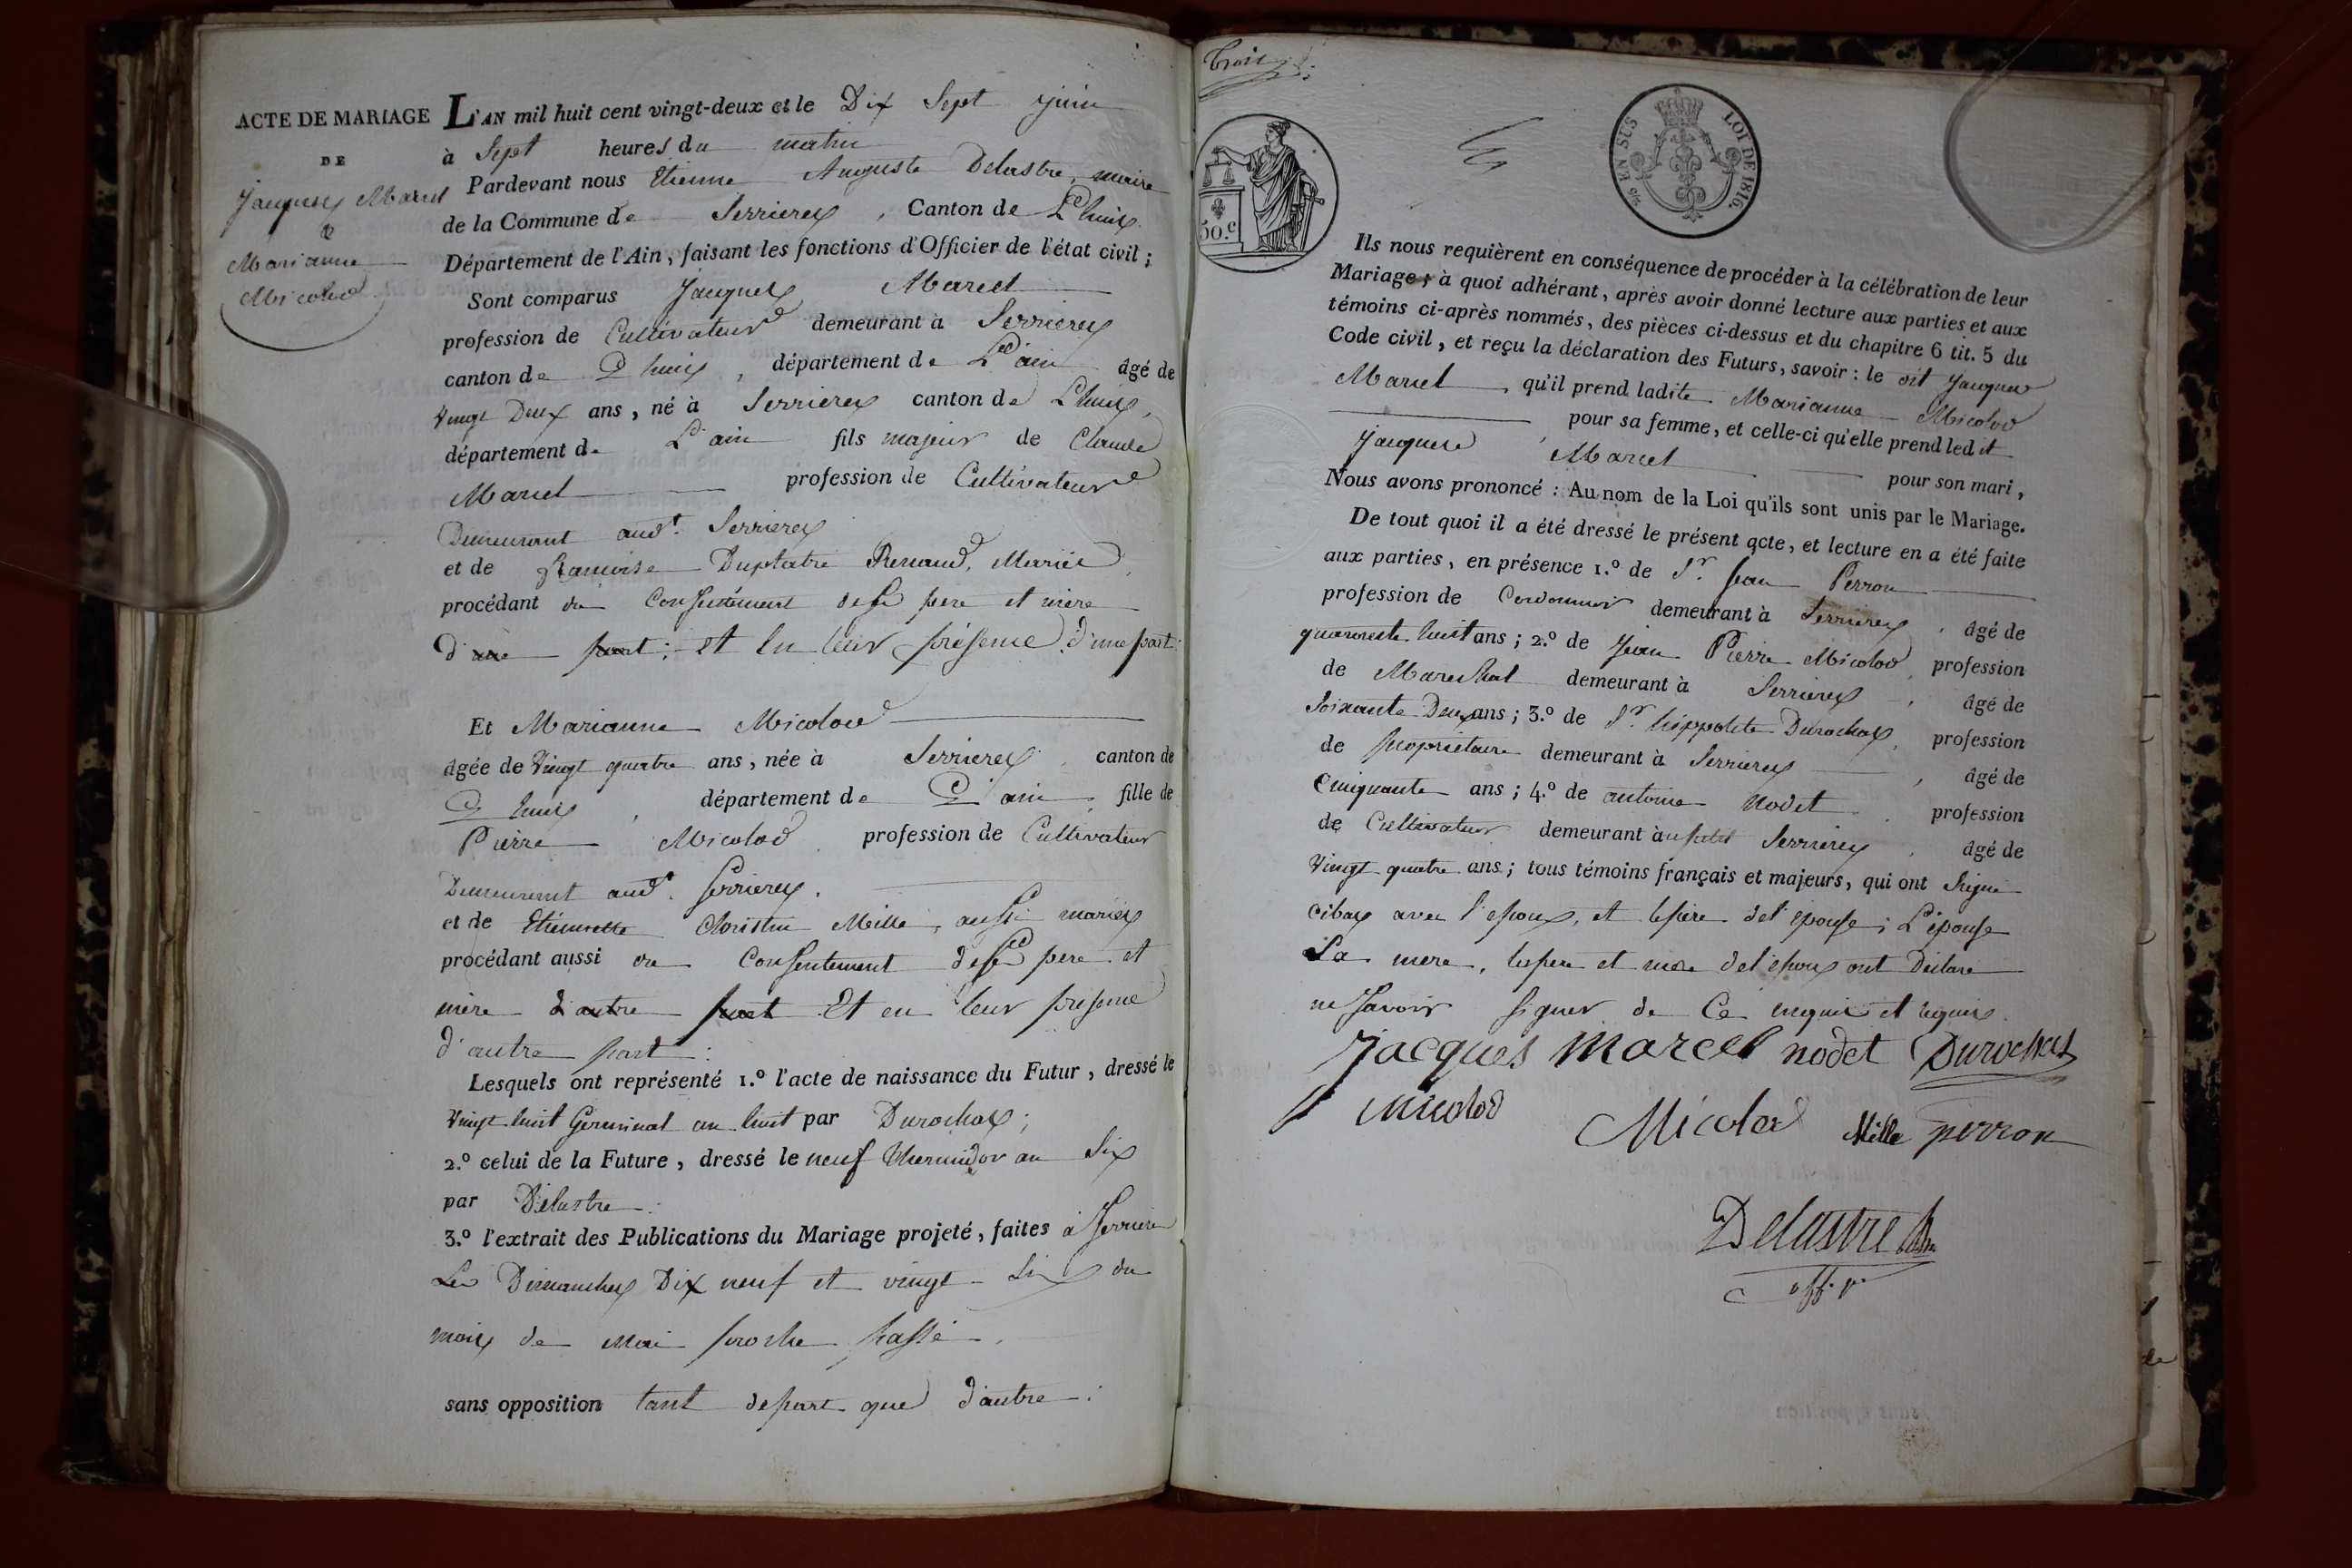 ACTE DE MARIAGE
DE
Jacques Marcel
&
Marianne
Micolod
L'AN mil huit cent vingt-deux et le Dix Sept juin
à Sept heures du matin
Pardevant nous Etienne Auguste Delastre, maire
de la Commune de Serrieres, Canton de Lhuis
Département de l'Ain, faisant les fonctions d'Officier de l'état civil;
Sont comparus Jacques Marcel
profession de Cultivateur demeurant à Serrieres
canton de Lhuis, département de L'ain âgé de
Vingt Deux ans, né à Serrieres canton de Lhuis,
département de L'ain fils majeur de Claude
Marcel profession de Cultivateur
Demeurant aud.t Serrieres
et de francoise Duplatre Renaud, Mariés,
procédant du Consentement de ses pere et mère
d'une part; et En leur présence d'une part:
Et Marianne Micolod
âgée de Vingt quatre ans, née à Serrieres, canton de
Lhuis, département de L'ain, fille de
Pierre Micolod, profession de Cultivateur
Demeurant aud.t Serrieres.
et de Etiennette Christin Meille, aussi mariés
procédant aussi du Consentement de ses pere et
mère d'autre part Et en leur presence
d'autre part:
Lesquels ont représenté 1.º l'acte de naissance du Futur, dressé le
Vingt huit Germinal an huit par Durochas;
2.º celui de la Future, dressé le neuf thermidor an Six
par Delastre.
3.º l'extrait des Publications du Mariage projeté, faites à Serrieres
Les Dimanches Dix neuf et vingt Six du
mois de mai proche passé,
sans opposition tant de part que d'autre:
EN SUS
LOI DE 1816.
50.c
Ils nous requièrent en conséquence de procéder à la célébration de leur
Mariage; à quoi adhérant, après avoir donné lecture aux parties et aux
témoins ci-après nommés, des pièces ci-dessus et du chapitre 6 tit. 5 du
Code civil, et reçu la déclaration des Futurs, savoir: le dit Jacques
Marcel, qu'il prend ladite Marianne Micolod
pour sa femme, et celle-ci qu'elle prend led it
Jacques Marcel pour son mari,
Nous avons prononcé: Au nom de la Loi qu'ils sont unis par le Mariage.
De tout quoi il a été dressé le présent acte, et lecture en a été faite
aux parties, en présence 1.º de S.r Jean Perron
profession de Cordonnier demeurant à Serrieres, âgé de
quarante huit ans; 2.º de Jean Pierre Micolod, profession
de Marechal demeurant à Serrieres, âgé de
Soixante Deux ans; 3.º de S.r hippolite Durochas, profession
de propriétaire demeurant à Serrieres, âgé de
Cinquante ans; 4.º de antoine Nodet, profession
de Cultivateur demeurant au petit Serrieres, âgé de
Vingt quatre ans; tous témoins français et majeurs, qui ont Signé
cibas avec l'epoux, et le père de l'epouse; L'épouse
Sa mere, le pere et mere de l'epoux ont Déclaré
ne Savoir signer de Ce enquis et requis.
Jacques Marcel nodet Durochas
Micolod Micolod Mille perron
Delastre
off. p.